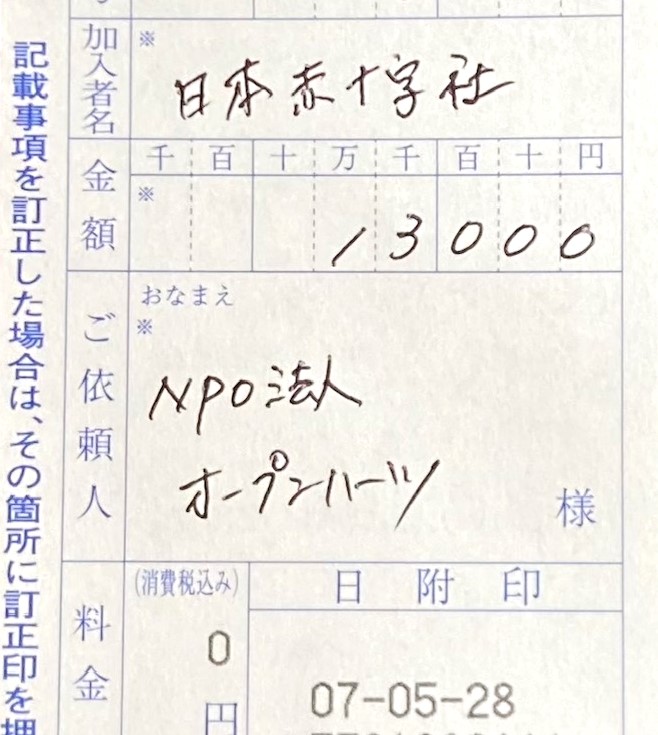 記載事項を訂正した場合は、その箇所に訂正印を押
加入者名
※
日本赤十字社
金額
千百十万千百十円
※
13000
ご依頼人
おなまえ
※
NPO法人
オープンハーツ
様
料金
(消費税込み)
0
円
日附印
07-05-28